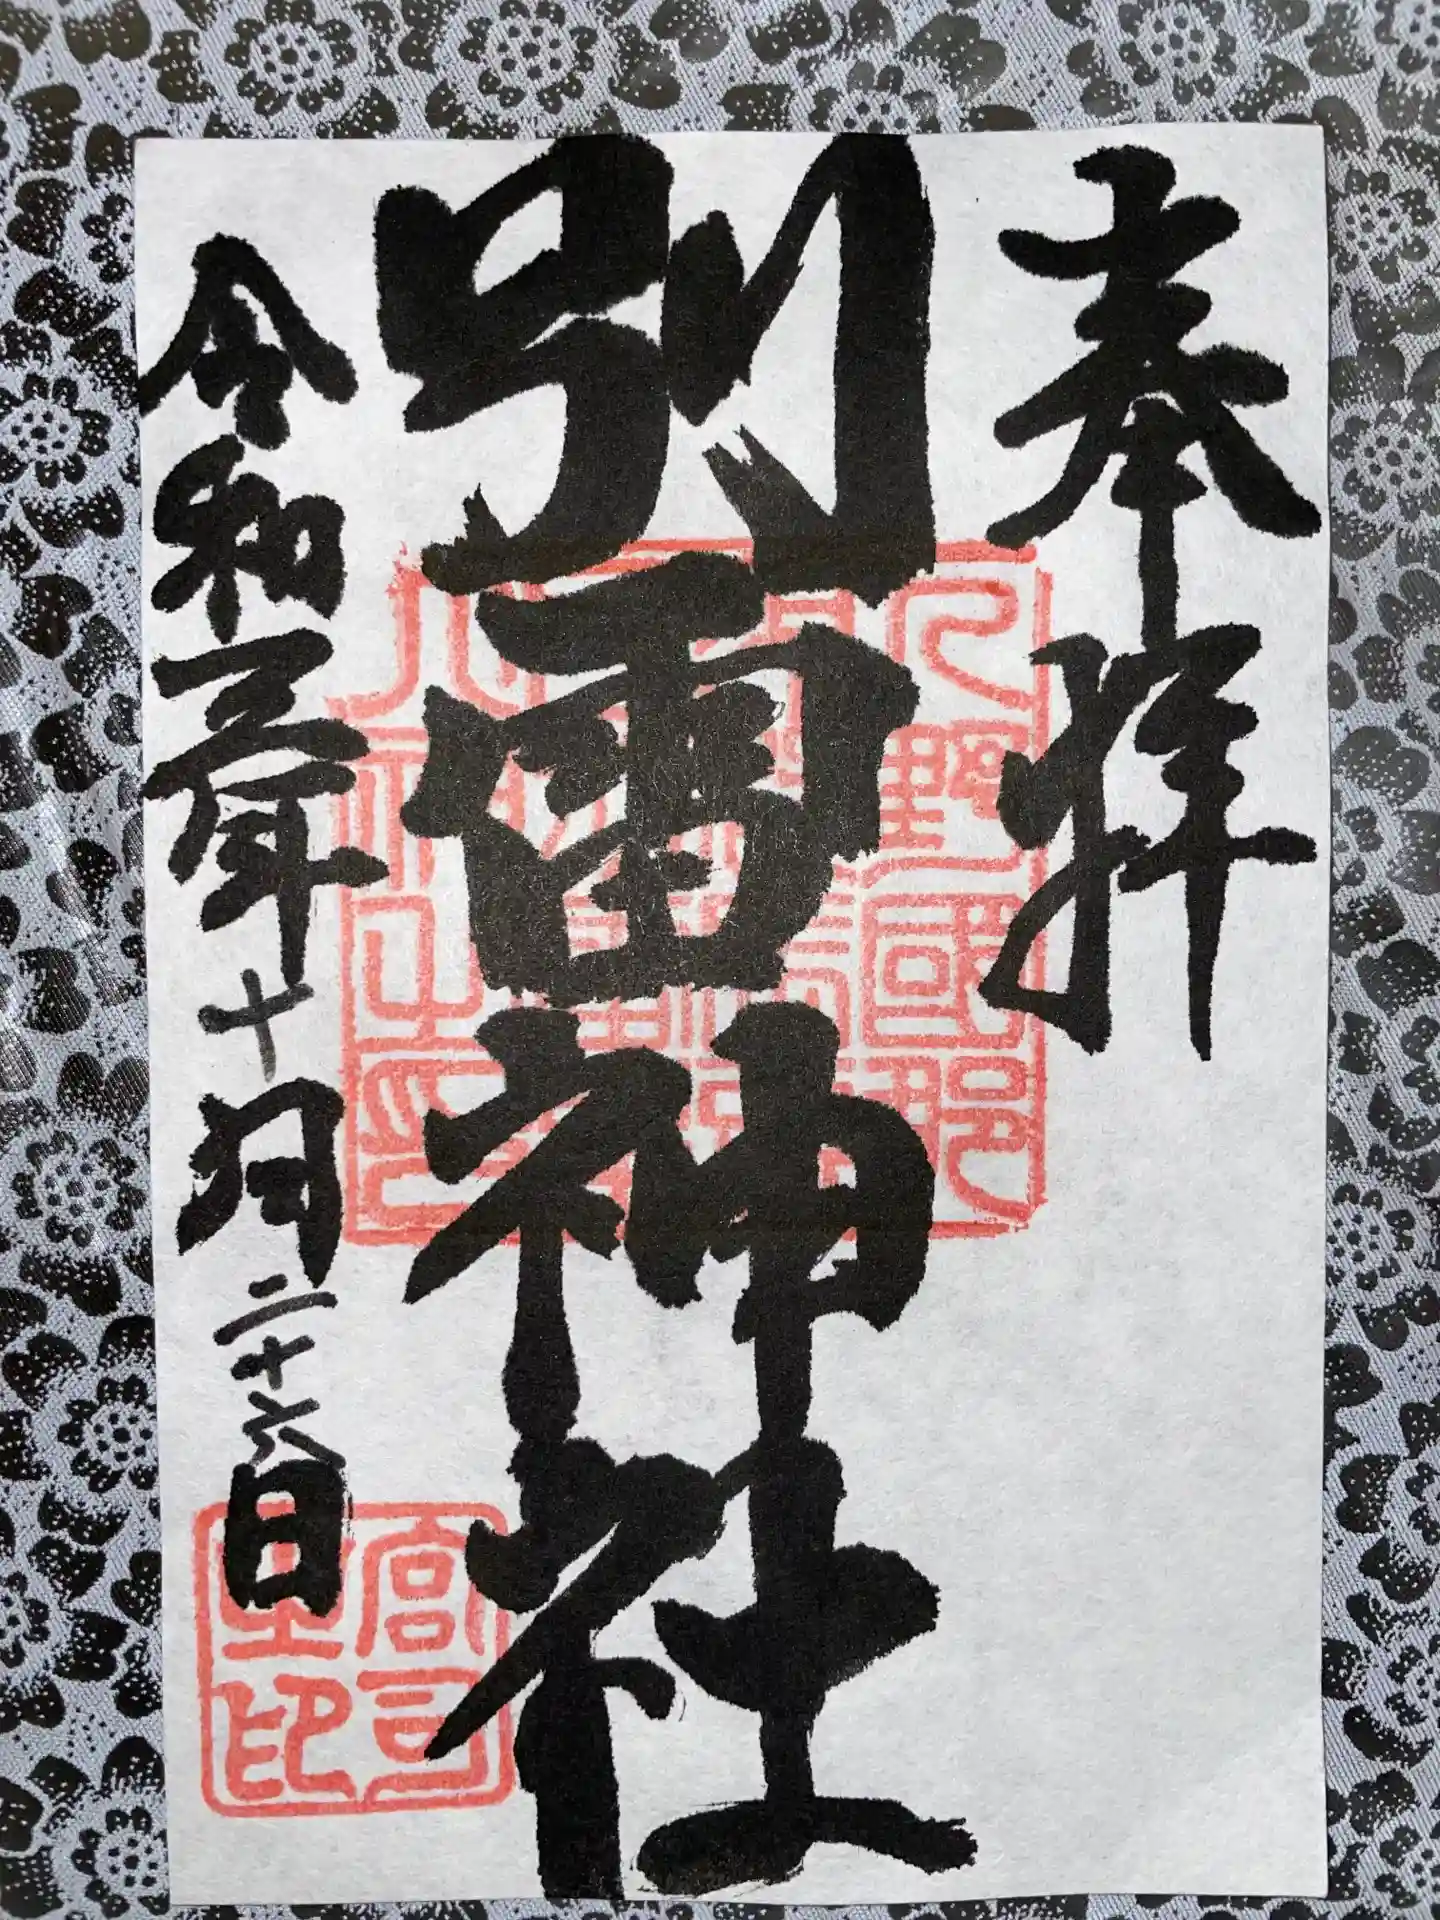 奉拝
別雷神社
令和五年十月二十六日
宮司
之印